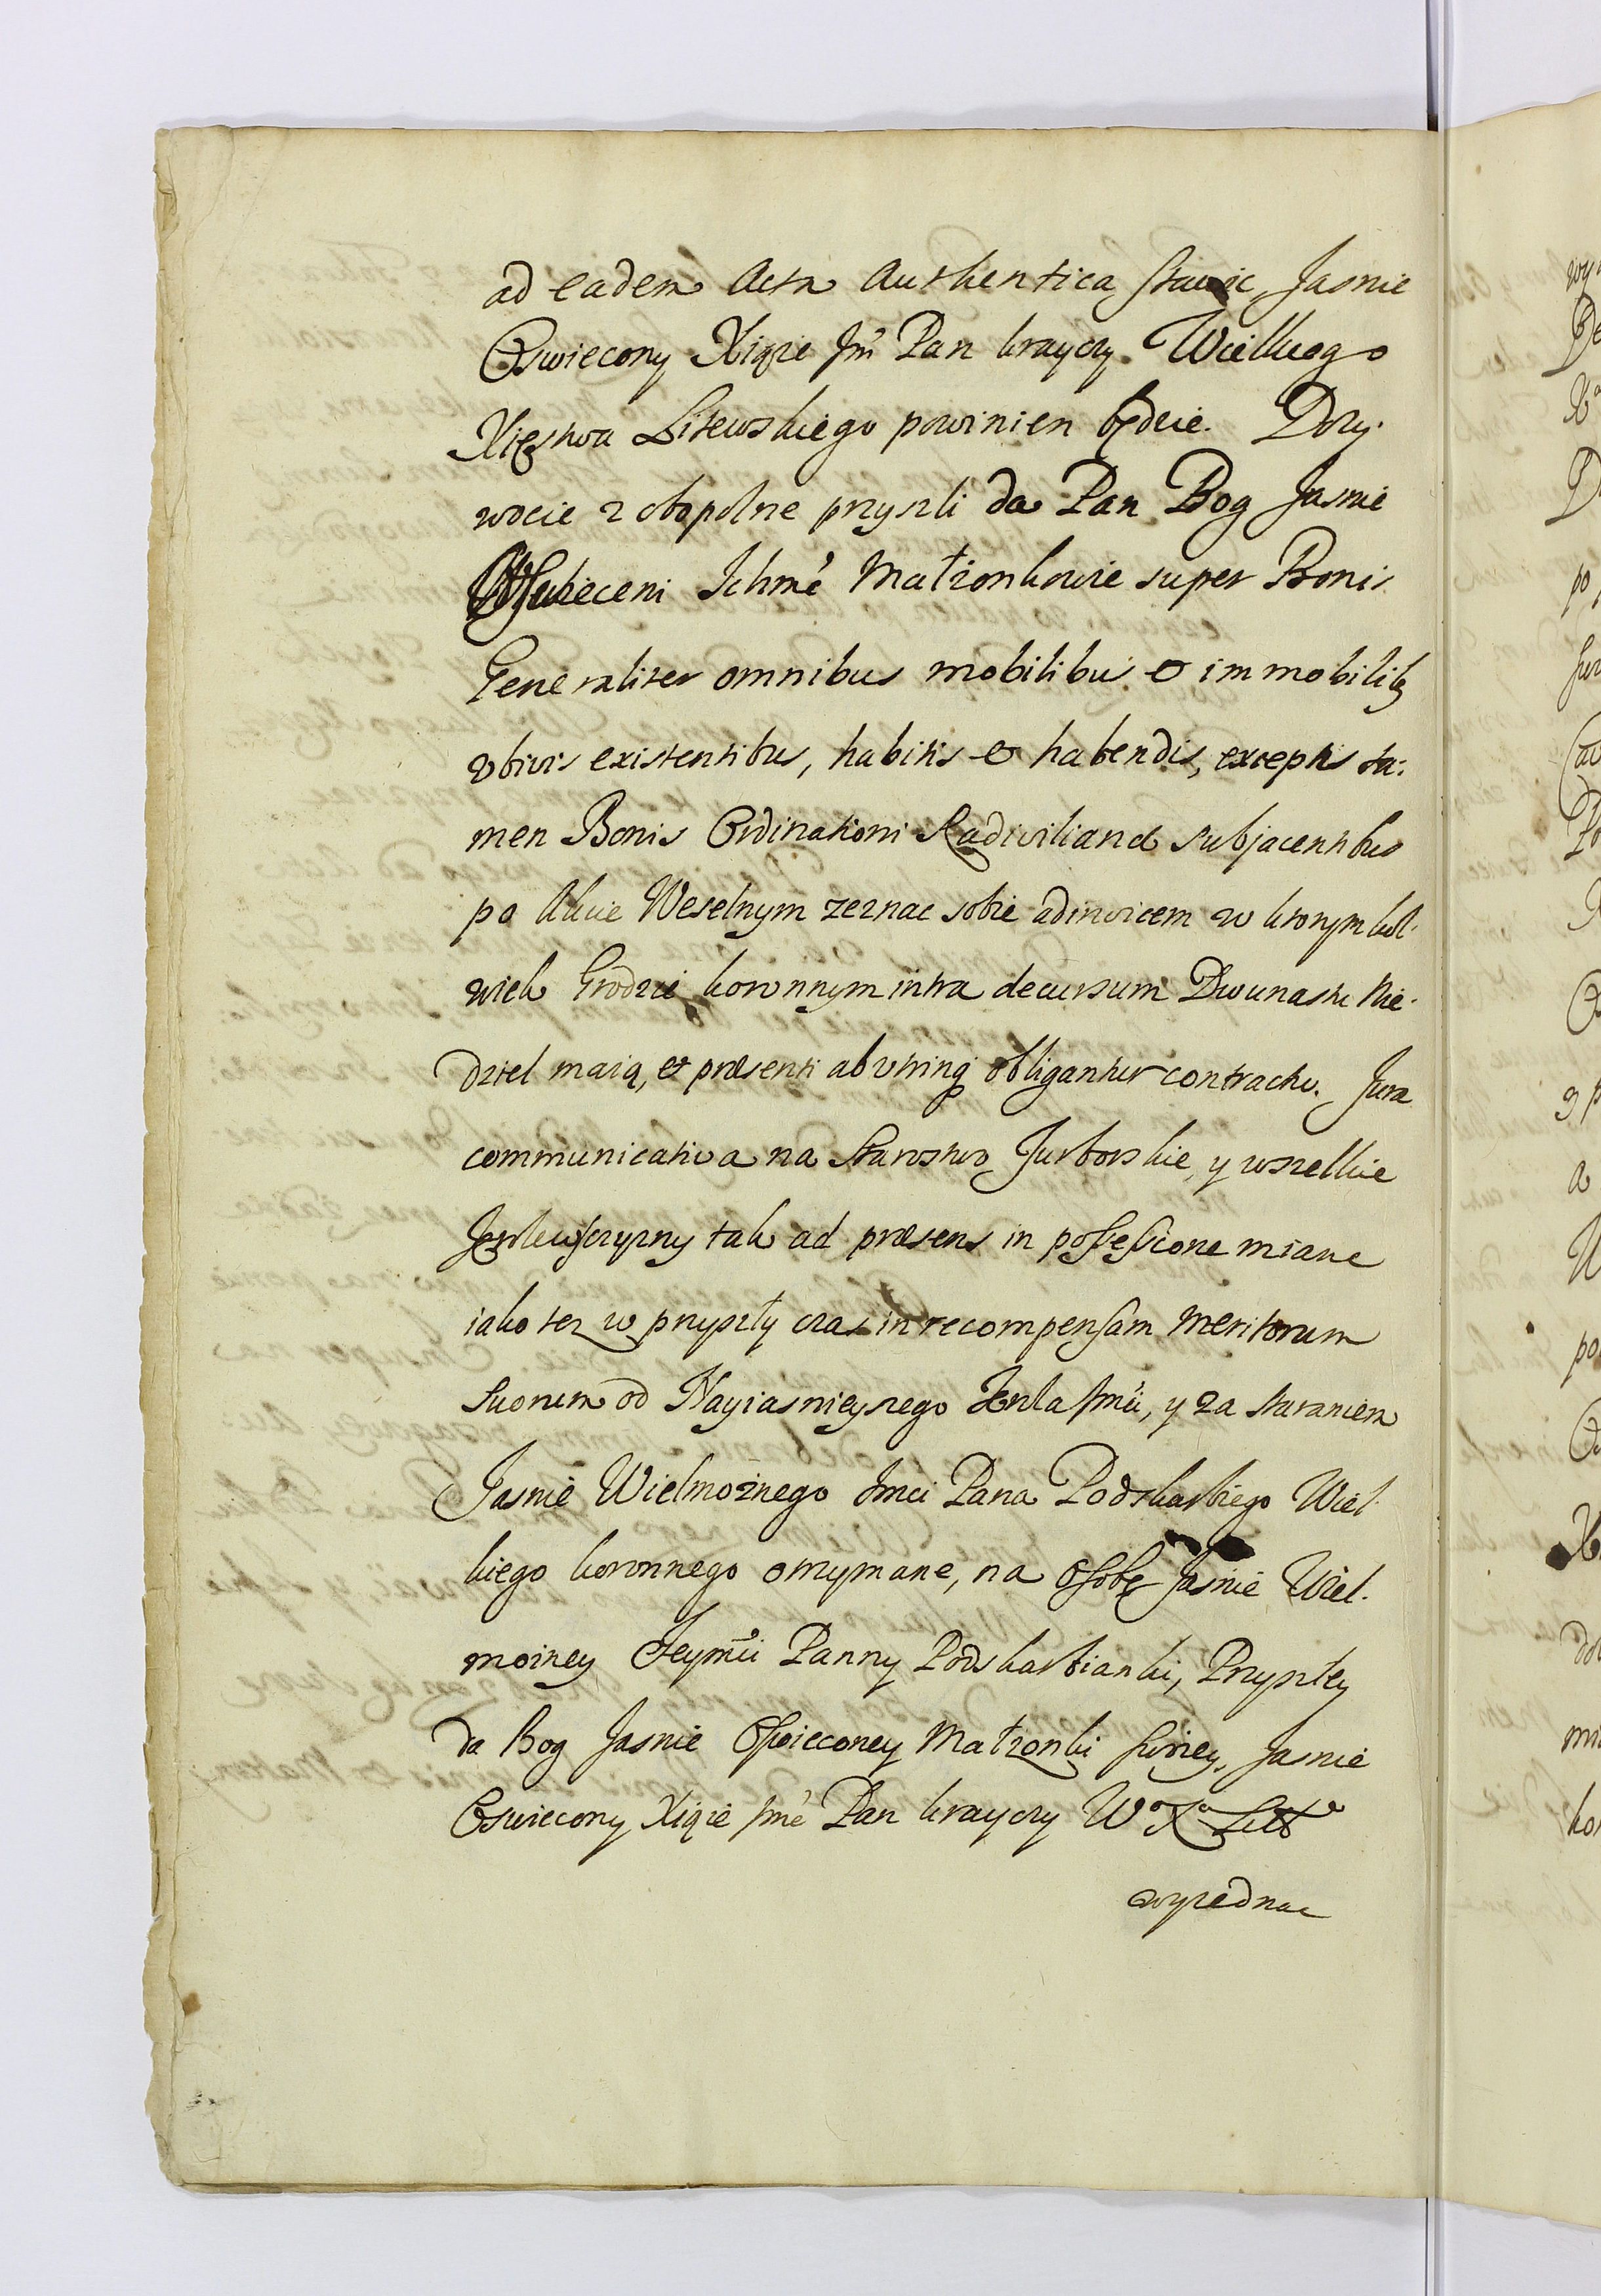 ad eadem Acta Authentica stawic, Jasnie
Oswiecony Xiąze Jmć Pan Krayczy Wielkiego
Xięstwa Litewskiego powinien będzie. Dozy-
wocie z obopolne przyszli da Pan Bog Jasnie
Oswieceni Ichmć Małzonkowie super Bonis
Generaliter omnibus mobilibus et immobilibus
ubivis existentibus, habitis et habendis, exceptis ta-
men Bonis Ordinationi Radivilianæ subjacentibus
po Akcie Weselnym zeznac sobie adinvicem w ktorymkol-
wiek Grodzie koronnym intra decursum Dwunastu Nie-
dziel maią, et præsenti ab utrinq obligantur contractu. Jura
communicativa na Starostwo Jurborskie, y wszelkie
Krolewszczyzny tak ad præsens in possessione miane
iako tez w przyszły czas in recompensam meritorum
suorum od Nayiasnieyszego Krola Jmci, y za staraniem
Jasnie Wielmoznego Jmci Pana Podskarbiego Wiel-
kiego koronnego otrzymane, na Osobę Jasnie Wiel-
mozney Jeymci Panny Podskarbianki, Przyszłey
da Bog Jasnie Oswieconey Małzonki swoiey, Jasnie
Oswiecony Xiąze Jmć Pan Krayczy Wo Xa Litto
wyiednac